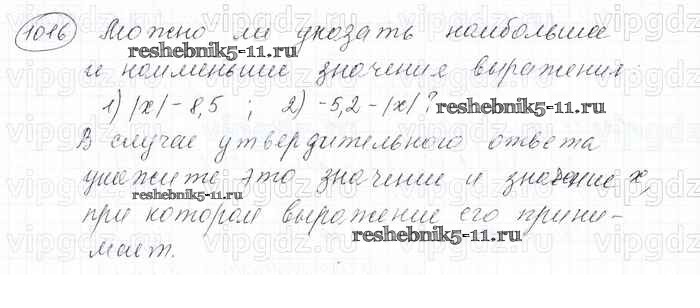 1016 Можно ли указать наибольшее
reshebnik5-11.ru
и наименьшие значения выражения:
1) |x| - 8,5 ; 2) -5,2 - |x| ? reshebnik5-11.ru
В случае утвердительного ответа
укажите это значение и значение x,
reshebnik5-11.ru
при котором выражение его прини-
reshebnik5-11.ru
мает.